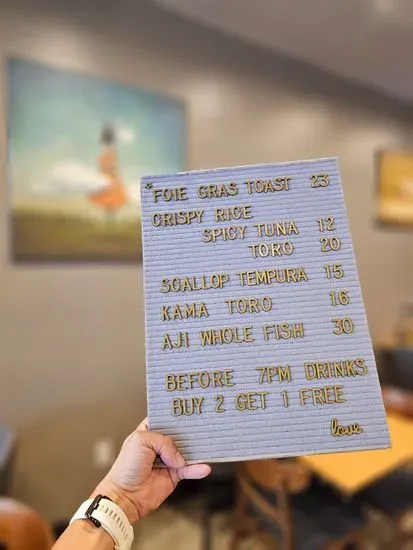 *FOIE GRAS TOAST 23
CRISPY RICE
SPICY TUNA 12
TORO 20
SCALLOP TEMPURA 15
KAMA TORO 16
AJI WHOLE FISH 30
BEFORE 7PM DRINKS
BUY 2 GET 1 FREE
love